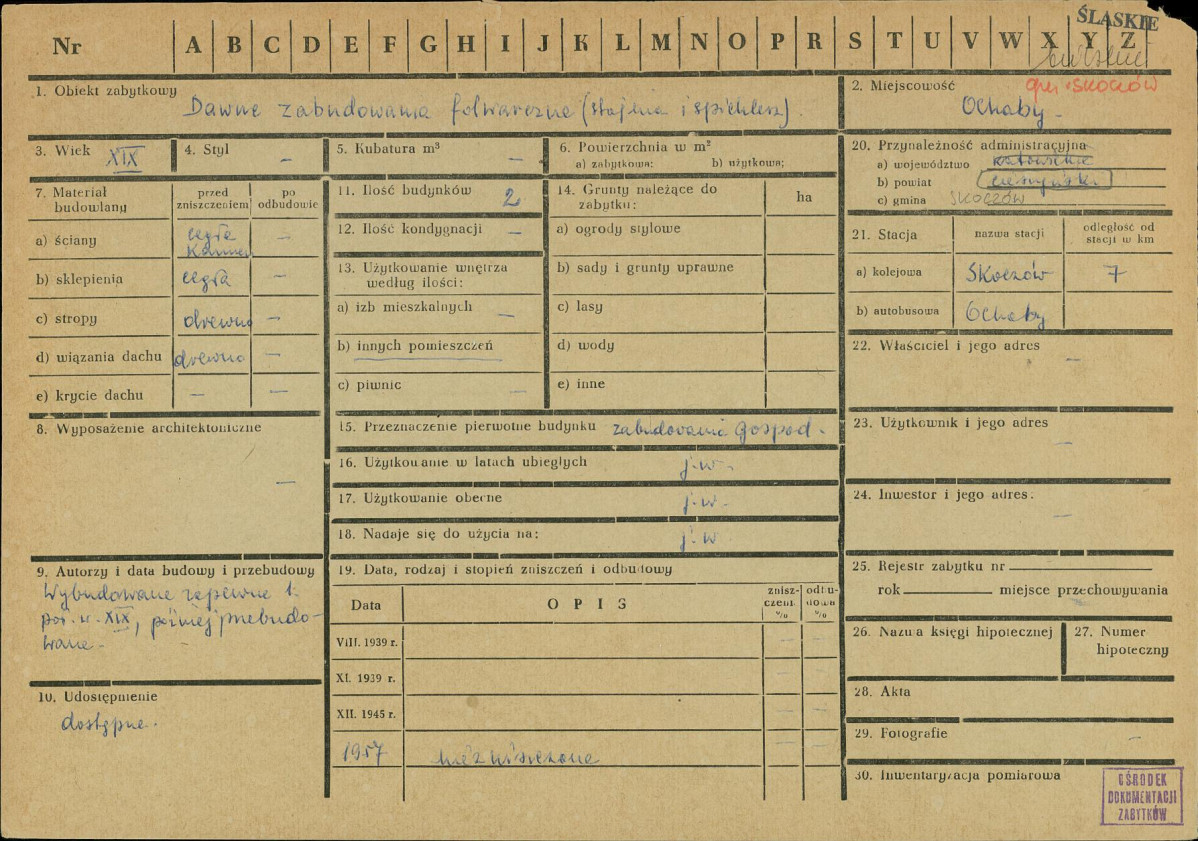 Nr A B C D E F G H I J K L M N O P R S T U V W X Y Z
ŚLĄSKIE
gm. SKOCZÓW
1. Obiekt zabytkowy
Dawne zabudowania folwarczne (stajnia i spichlerz).
2. Miejscowość
Ochaby
3. Wiek XIX
4. Styl –
5. Kubatura m³ –
6. Powierzchnia w m²
a) zabytkowa: b) użytkowa:
7. Materiał budowlany
przed zniszczeniem
po odbudowie
a) ściany cegła kamień –
b) sklepienia cegła –
c) stropy drewno –
d) wiązania dachu drewno –
e) krycie dachu – –
8. Wyposażenie architektoniczne
–
9. Autorzy i data budowy i przebudowy
Wybudowane zapewne 1.
poł. w. XIX, później przebudo-
wane –
10. Udostępnienie
dostępne.
11. Ilość budynków 2
12. Ilość kondygnacji –
13. Użytkowanie wnętrza
według ilości:
a) izb mieszkalnych –
b) innych pomieszczeń
c) piwnic –
14. Grunty należące do
zabytku:
ha
a) ogrody stylowe
b) sady i grunty uprawne
c) lasy
d) wody
e) inne
15. Przeznaczenie pierwotne budynku zabudowania gospod.
16. Użytkowanie w latach ubiegłych j.w.
17. Użytkowanie obecne j.w.
18. Nadaje się do użycia na: j.w.
19. Data, rodzaj i stopień zniszczeń i odbudowy
Data OPIS zniszczeni. % odbudowa %
VIII. 1939 r. – –
XI. 1939 r. – –
XII. 1945 r. – –
1957 niezniszczone – –
20. Przynależność administracyjna
a) województwo katowickie
b) powiat cieszyński
c) gmina SKOCZÓW
21. Stacja
nazwa stacji
odległość od
stacji w km
a) kolejowa Skoczów 7
b) autobusowa Ochaby
22. Właściciel i jego adres
–
23. Użytkownik i jego adres
–
24. Inwestor i jego adres:
–
25. Rejestr zabytku nr
rok miejsce przechowywania
26. Nazwa księgi hipotecznej
27. Numer
hipoteczny
28. Akta
29. Fotografie –
30. Inwentaryzacja pomiarowa
OŚRODEK
DOKUMENTACJI
ZABYTKÓW